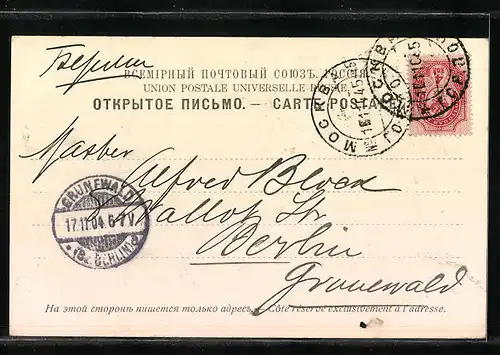 Берлин
ВСЕМІРНЫЙ ПОЧТОВЫЙ СОЮЗЪ. РОССІЯ.
UNION POSTALE UNIVERSELLE RUSSIE.
ОТКРЫТОЕ ПИСЬМО. — CARTE POSTALE
МОСКВА
Master
Alfred Block
Wallot Str.
Berlin
Grunewald
GRUNEWALD
17.11.04. 6-7V.
*(Bz. BERLIN)*
На этой сторонѣ пишется только адресъ. – Côté réservé exclusivement à l'adresse.